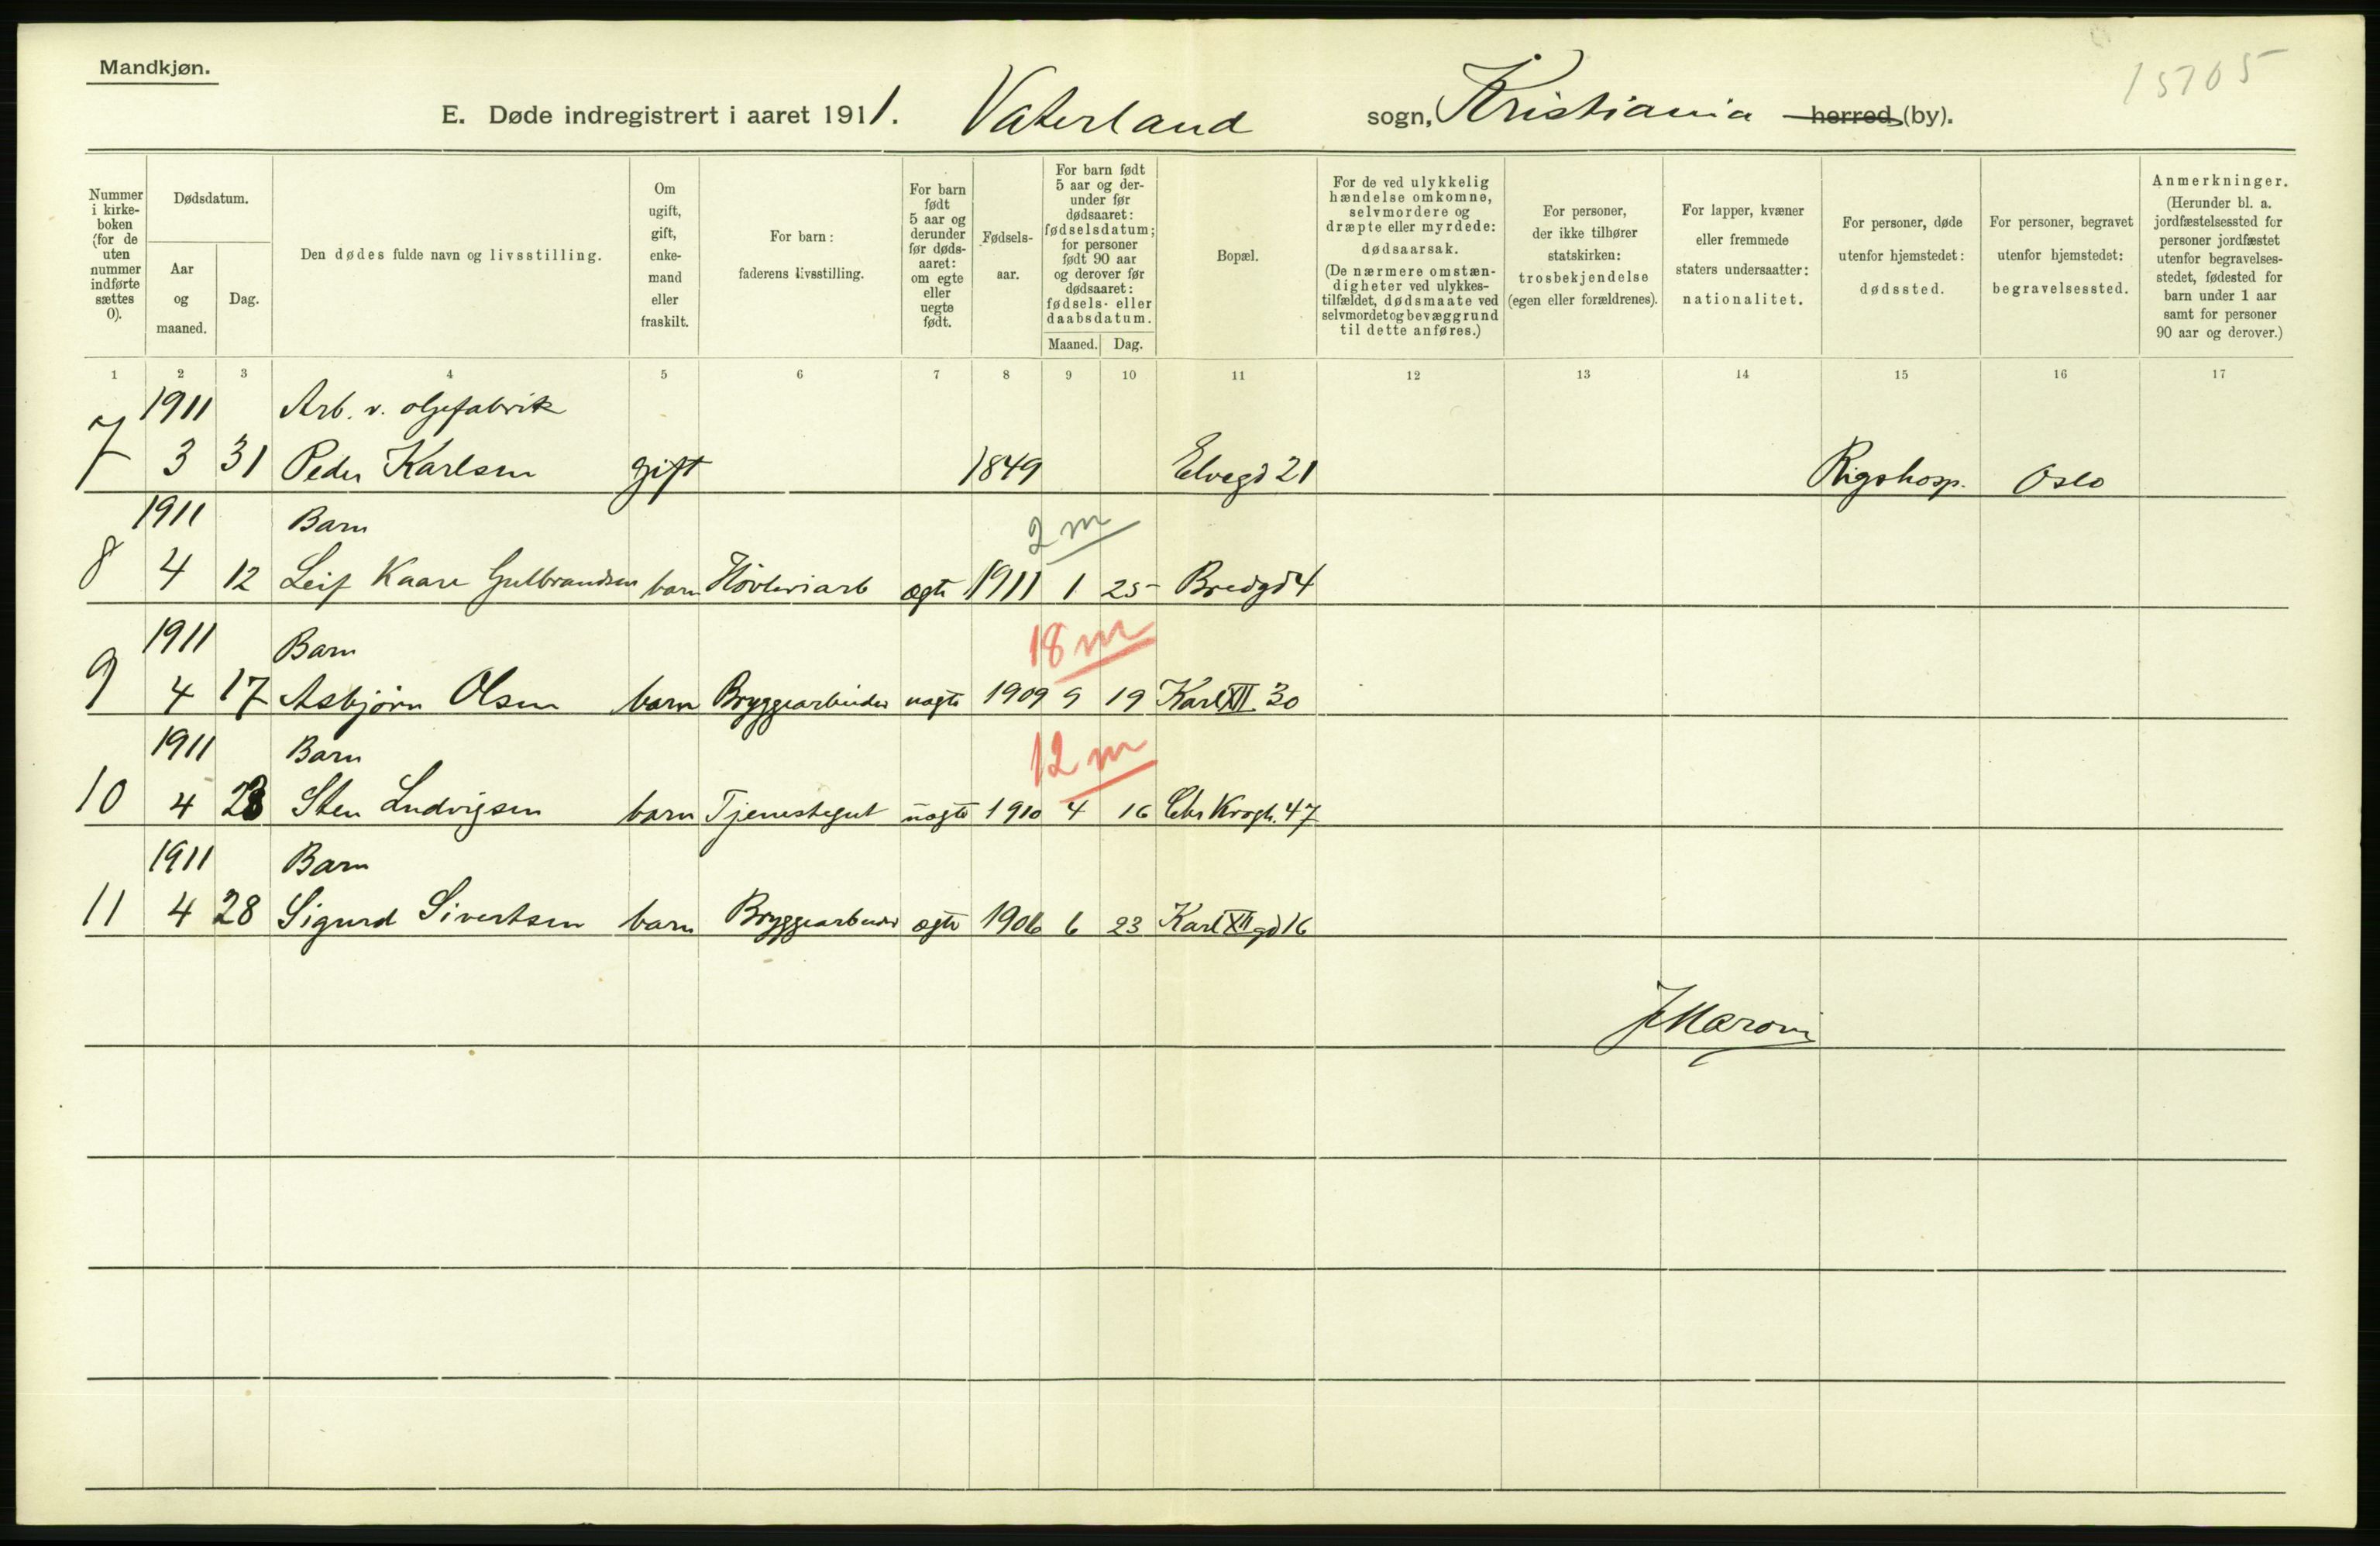 Mandkjøn.
15705
E. Døde indregistrert i aaret 1911. Vaterland sogn, Kristiania herred (by).
Nummer i kirke-boken (for de uten nummer indførte sættes 0).
Dødsdatum.
Aar og maaned.
Dag.
Den dødes fulde navn og livsstilling.
Om ugift, gift, enke-mand eller fraskilt.
For barn: faderens livsstilling.
For barn født 5 aar og derunder før døds-aaret: om egte eller uegte født.
Fødsels-aar.
For barn født 5 aar og der-under før dødsaaret: fødselsdatum; for personer født 90 aar og derover før dødsaaret: fødsels- eller daabsdatum.
Maaned. Dag.
Bopæl.
For de ved ulykkelig hændelse omkomne, selvmordere og dræpte eller myrdede: dødsaarsak. (De nærmere omstæn-digheter ved ulykkes-tilfældet, dødsmaate ved selvmordet og bevæggrund til dette anføres.)
For personer, der ikke tilhører statskirken: trosbekjendelse (egen eller forældrenes).
For lapper, kvæner eller fremmede staters undersaatter: nationalitet.
For personer, døde utenfor hjemstedet: dødssted.
For personer, begravet utenfor hjemstedet: begravelsessted.
Anmerkninger. (Herunder bl. a. jordfæstelsessted for personer jordfæstet utenfor begravelses-stedet, fødested for barn under 1 aar samt for personer 90 aar og derover.)
1 2 3 4 5 6 7 8 9 10 11 12 13 14 15 16 17
1911 Arb. v. oljefabrik
7 3 31 Peder Karlsen gift 1849 Elvegd 21 Rigshosp. Oslo
1911 Barn 2 m
8 4 12 Leif Kaare Gulbrandsen barn Høvleriarb ægte 1911 1 25 Bredgd 4
1911 Barn 18 m
9 4 17 Asbjørn Olsen barn Bryggearbeider uægte 1909 9 19 Karl XII 30
1911 Barn 12 m
10 4 28 Sten Ludvigsen barn Tjenestegut uægte 1910 4 16 Chr Krogh. 47
1911 Barn
11 4 28 Sigurd Sivertsen barn Bryggearbeider ægte 1906 6 23 Karl XII gd 16